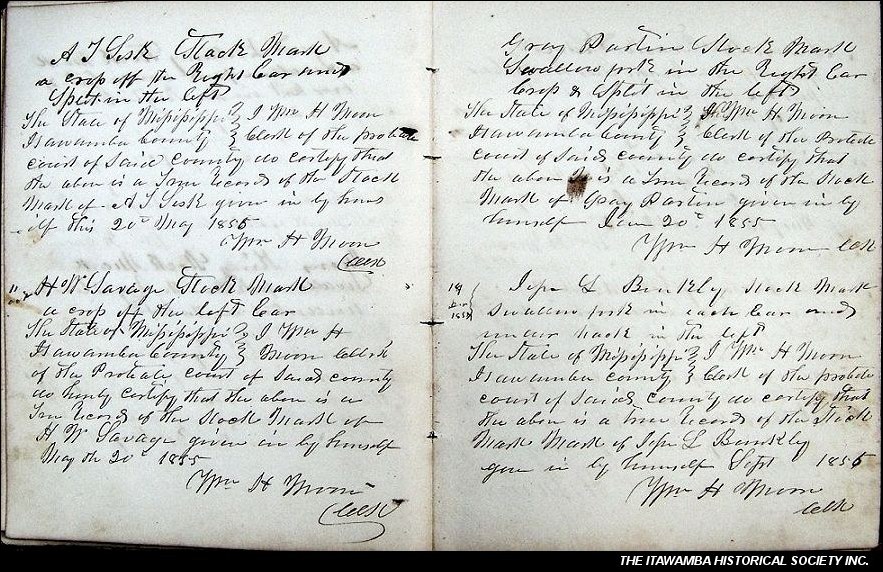 A T Sisk Stock Mark
a crop off the Right Ear and
Split in the left
The State of Mississippi } I Wm H Moon
Itawamba County } Clerk of the probate
court of Said County do certify that
the above is a True Record of the Stock
Mark of A T Sisk given in by hims
elf this 20th May 1855
Wm H Moon
Clerk
H W Savage Stock Mark
a crop off the left Ear
The State of Mississippi } I Wm H
Itawamba County } Moon Clerk
of the Probate court of Said county
do hereby certify that the above is a
True Record of the Stock Mark of
H W Savage given in by himself
May the 20th 1855
Wm H Moon
Clerk
Gray Partin Stock Mark
Swallow fork in the Right Ear
Crop & Split in the left
The State of Mississippi } I Wm H Moon
Itawamba County } Clerk of the Probate
court of Said county do certify that
the above is a True Record of the Stock
Mark of Gray Partin given in by
himself 20th 1855
Wm H Moon Clk
Jese L Binkley Stock Mark
Swallow fork in each Ear and
under back in the left
The State of Mississippi } I Wm H Moon
Itawamba county } Clerk of the probate
court of Said County do certify that
the above is a true Record of the Stock
Mark Mark of Jese L Binkley
given in by himself Sept 1855
Wm H Moon
Clk
THE ITAWAMBA HISTORICAL SOCIETY INC.